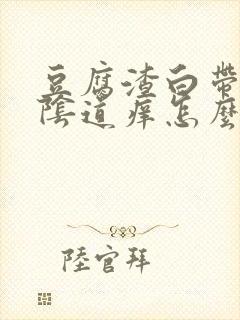 豆腐渣白帶
陰道癢怎麼
陸官拜